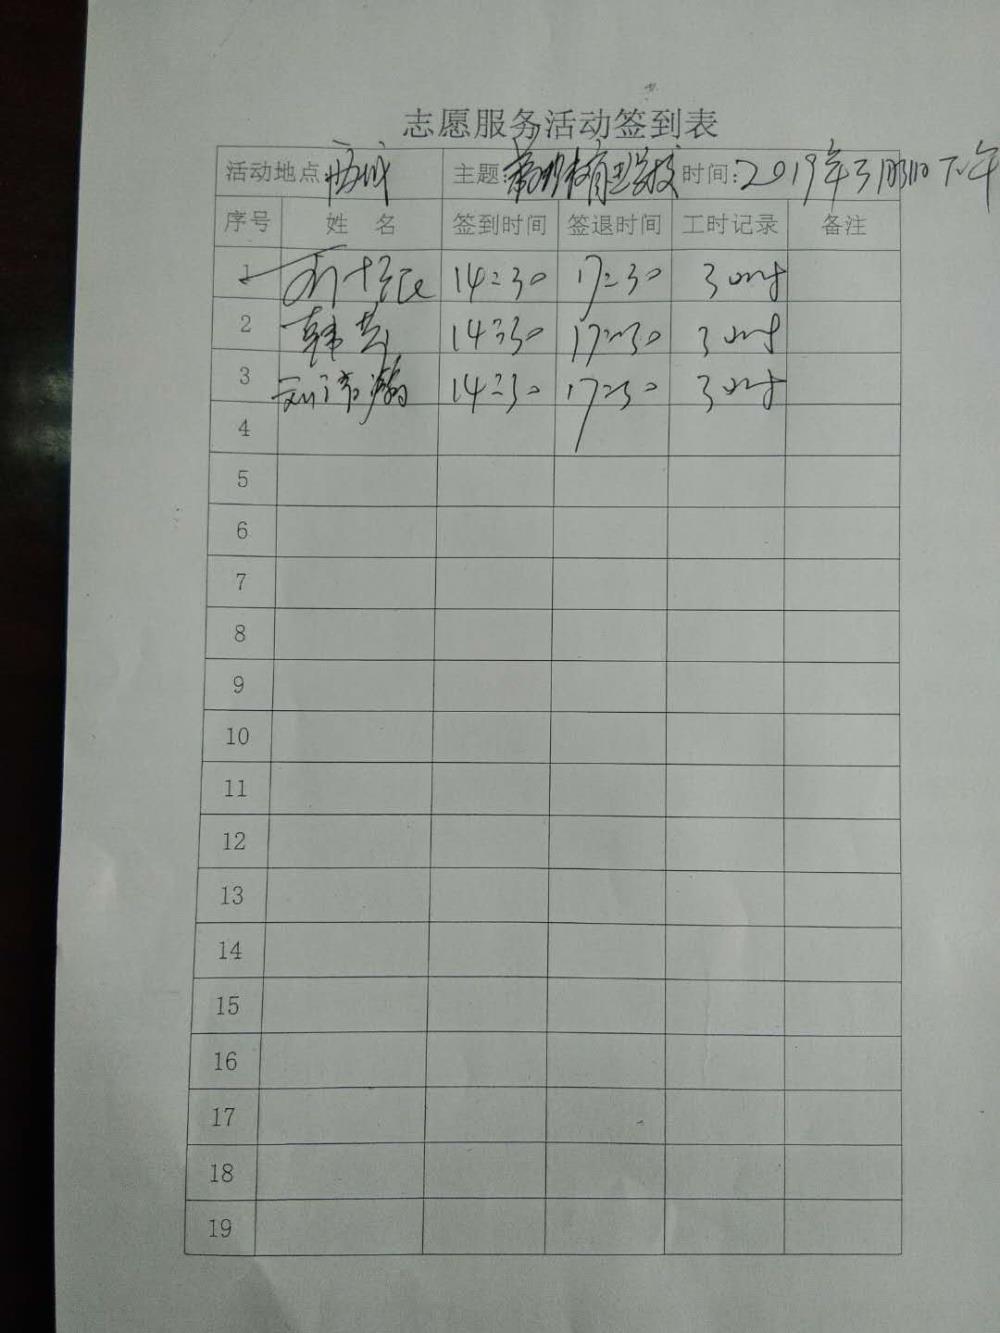 志愿服务活动签到表
活动地点 西城 主题: 时间: 2019年3月 下午
序号 姓 名 签到时间 签退时间 工时记录 备注
1 14:30 17:30 3小时
2 韩 14:30 17:30 3小时
3 刘 14:30 17:30 3小时
4
5
6
7
8
9
10
11
12
13
14
15
16
17
18
19